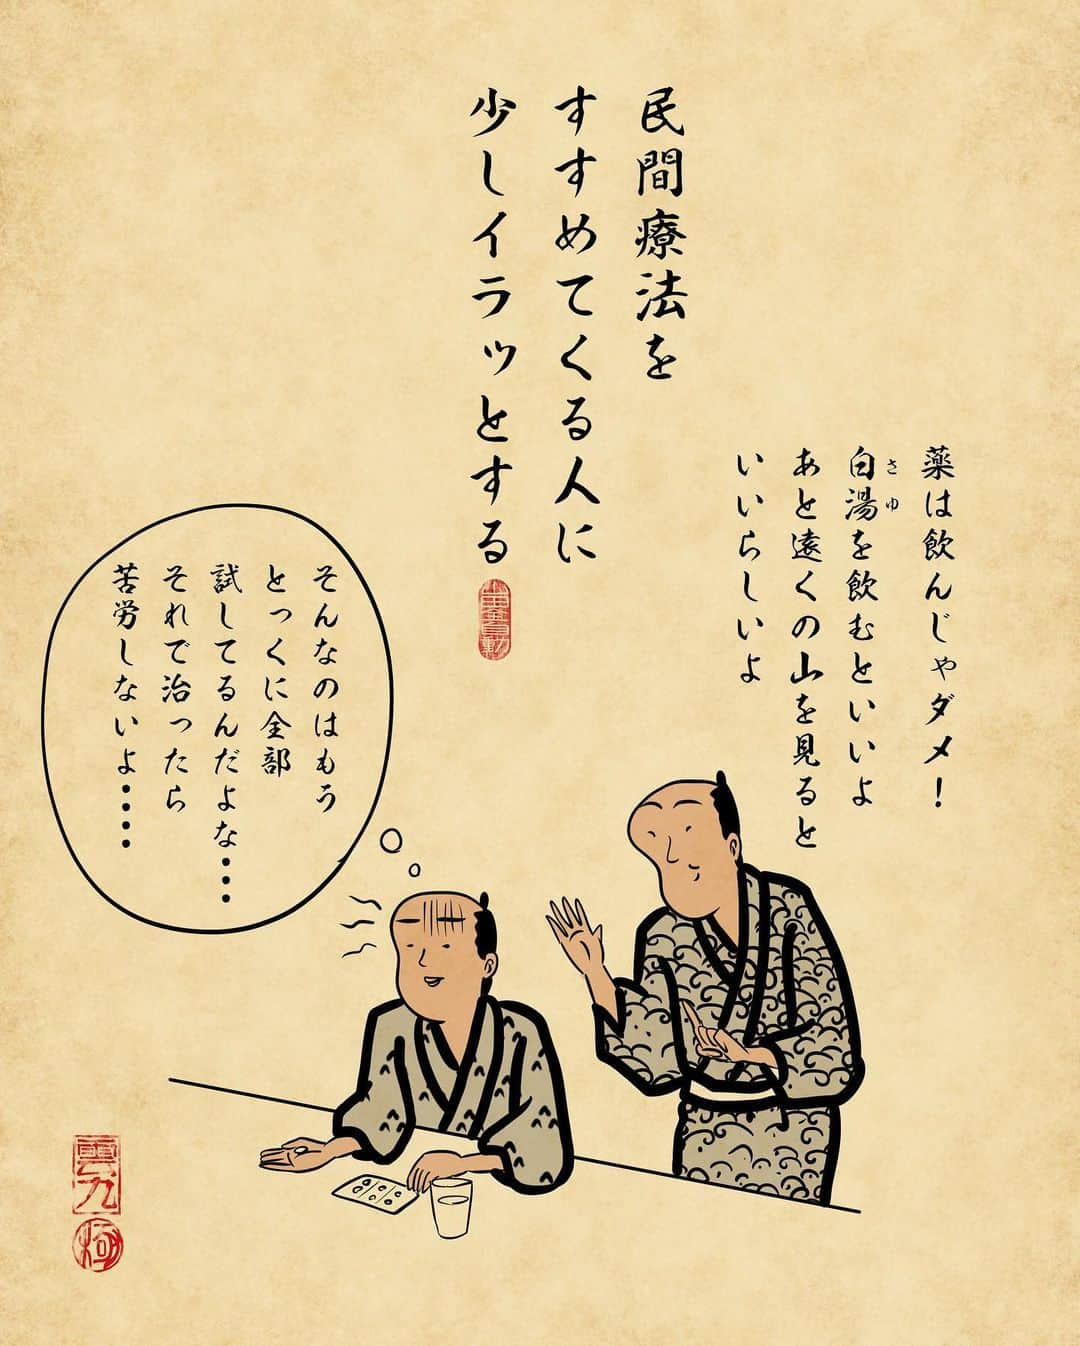 民間療法を
すすめてくる人に
少しイラッとする
薬は飲んじゃダメ！
白湯を飲むといいよ
さゆ
あと遠くの山を見ると
いいらしいよ
そんなのはもう
とっくに全部
試してるんだよな・・・
それで治ったら
苦労しないよ・・・・